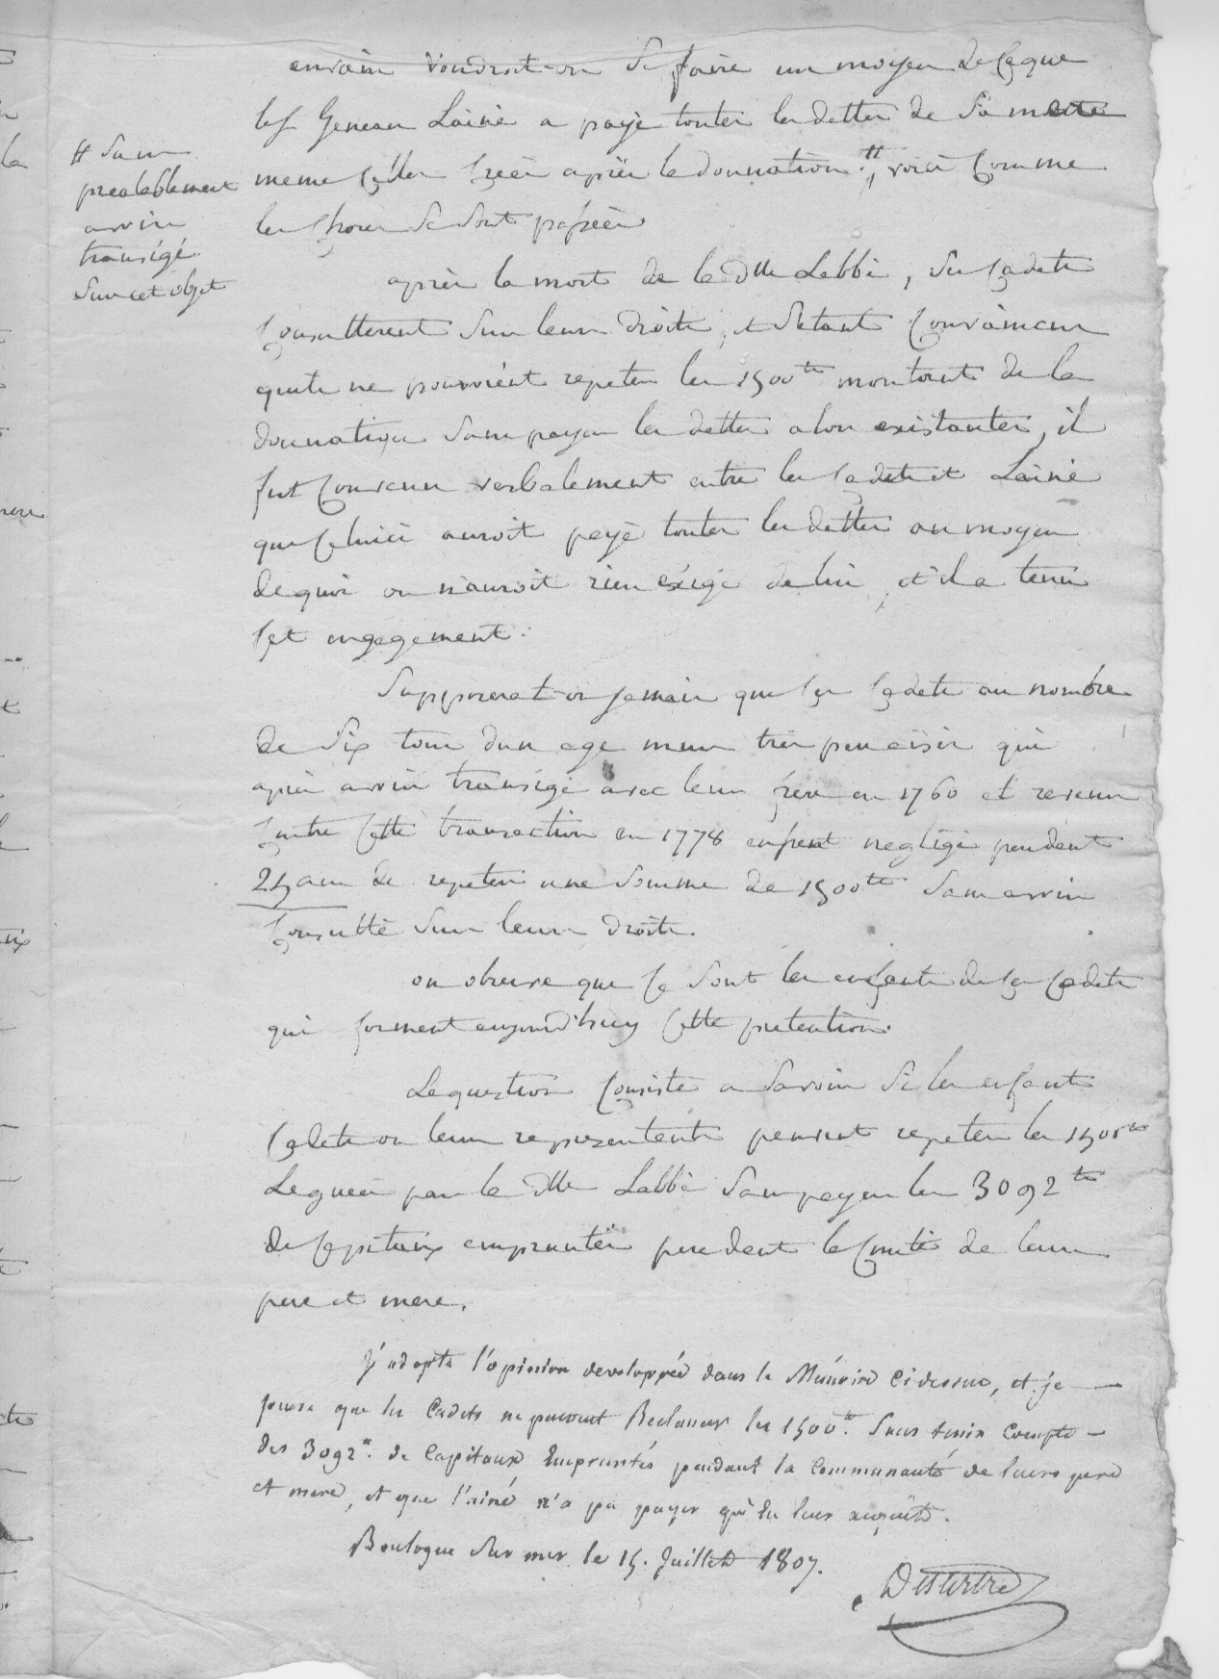 envain voudroit-on se faire un moyen de ce que
le s. Geneau Lainé a payé toutes les dettes de sa mere
meme celles créés aprés la donnation #, voici comme
les choses se sont passées
# sans
prealablement
avoir
transigé
sur cet objet
aprés la mort de la dlle Labbé, ses cadets
consulterent sur leurs droits, et s'etant convaincus
qu'ils ne pouvoient repeter les 1500tt montant de la
donnation sans payer les dettes alors existantes, il
fut convenu verbalement entre les cadets et Lainé
que celuici auroit payé toutes les dettes au moyen
de quoi on n'auroit rien éxigé de lui, et il a tenu
cet engagement.
Supposerat-on jamais que ces cadets au nombre
de six tous d'un age mur tres peu aisés qui
aprés avoir transigé avec leur frere en 1760 et revenu
contre cette transaction en 1778 eussent negligé pendant
25 ans de repeter une somme de 1500tt sans avoir
consulté sur leurs droits.
on observe que ce sont les enfants de ces cadets
qui forment aujourd'huy cette pretention.
La question consiste a savoir si les enfants
cadets ou leurs representents peuvent repeter les 1500tt
Leguées par la dlle Labbé sans payer les 3092tt
de capitaux empruntés pendent la Conté de leurs
pere et mere.
J'adopte l'opinion developpée dans le Mémoire cidessus, et je
pense que les Cadets ne peuvent Reclamer les 1500tt. sans tenir compte
des 3092tt. de Capitaux Empruntés pendant la Communauté de leurs pere
et mere, et que l'ainé n'a pu payer qu'en leur acquit.
Boulogne sur mer le 15. Juillet 1807.
Dutertre